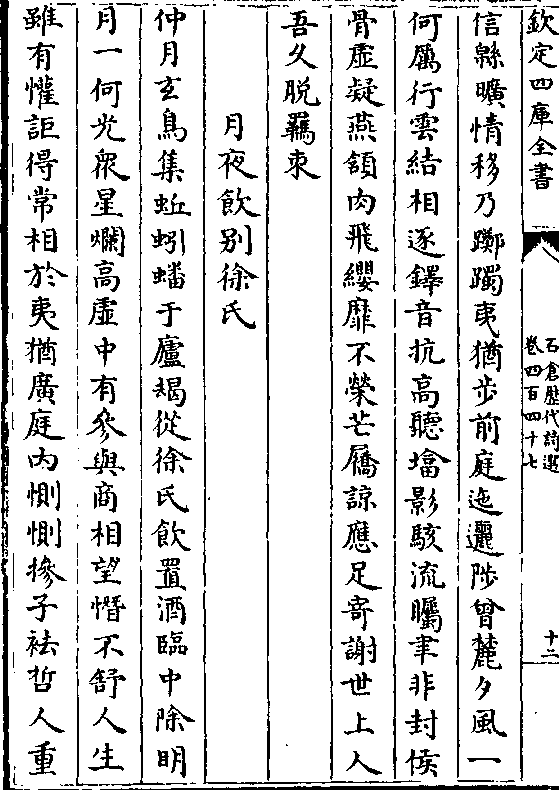 欽定四庫全書
石倉歷代詩選
卷四百四十七
十二
信緜曠情移乃躑躅夷猶步前庭迤邐陟曾麓夕風一
何厲行雲結相逐鐸音抗高聽墖影駭流矚聿非封侯
骨虛凝燕頷肉飛纓靡不榮芒屩諒應足寄謝世上人
吾久脱羈束
月夜飲别徐氏
仲月玄鳥集蚯蚓蟠于廬朅從徐氏飲置酒臨中除明
月一何光衆星爛高虛中有參與商相望憯不舒人生
雖有懽詎得常相於夷猶廣庭内惻惻摻子袪哲人重